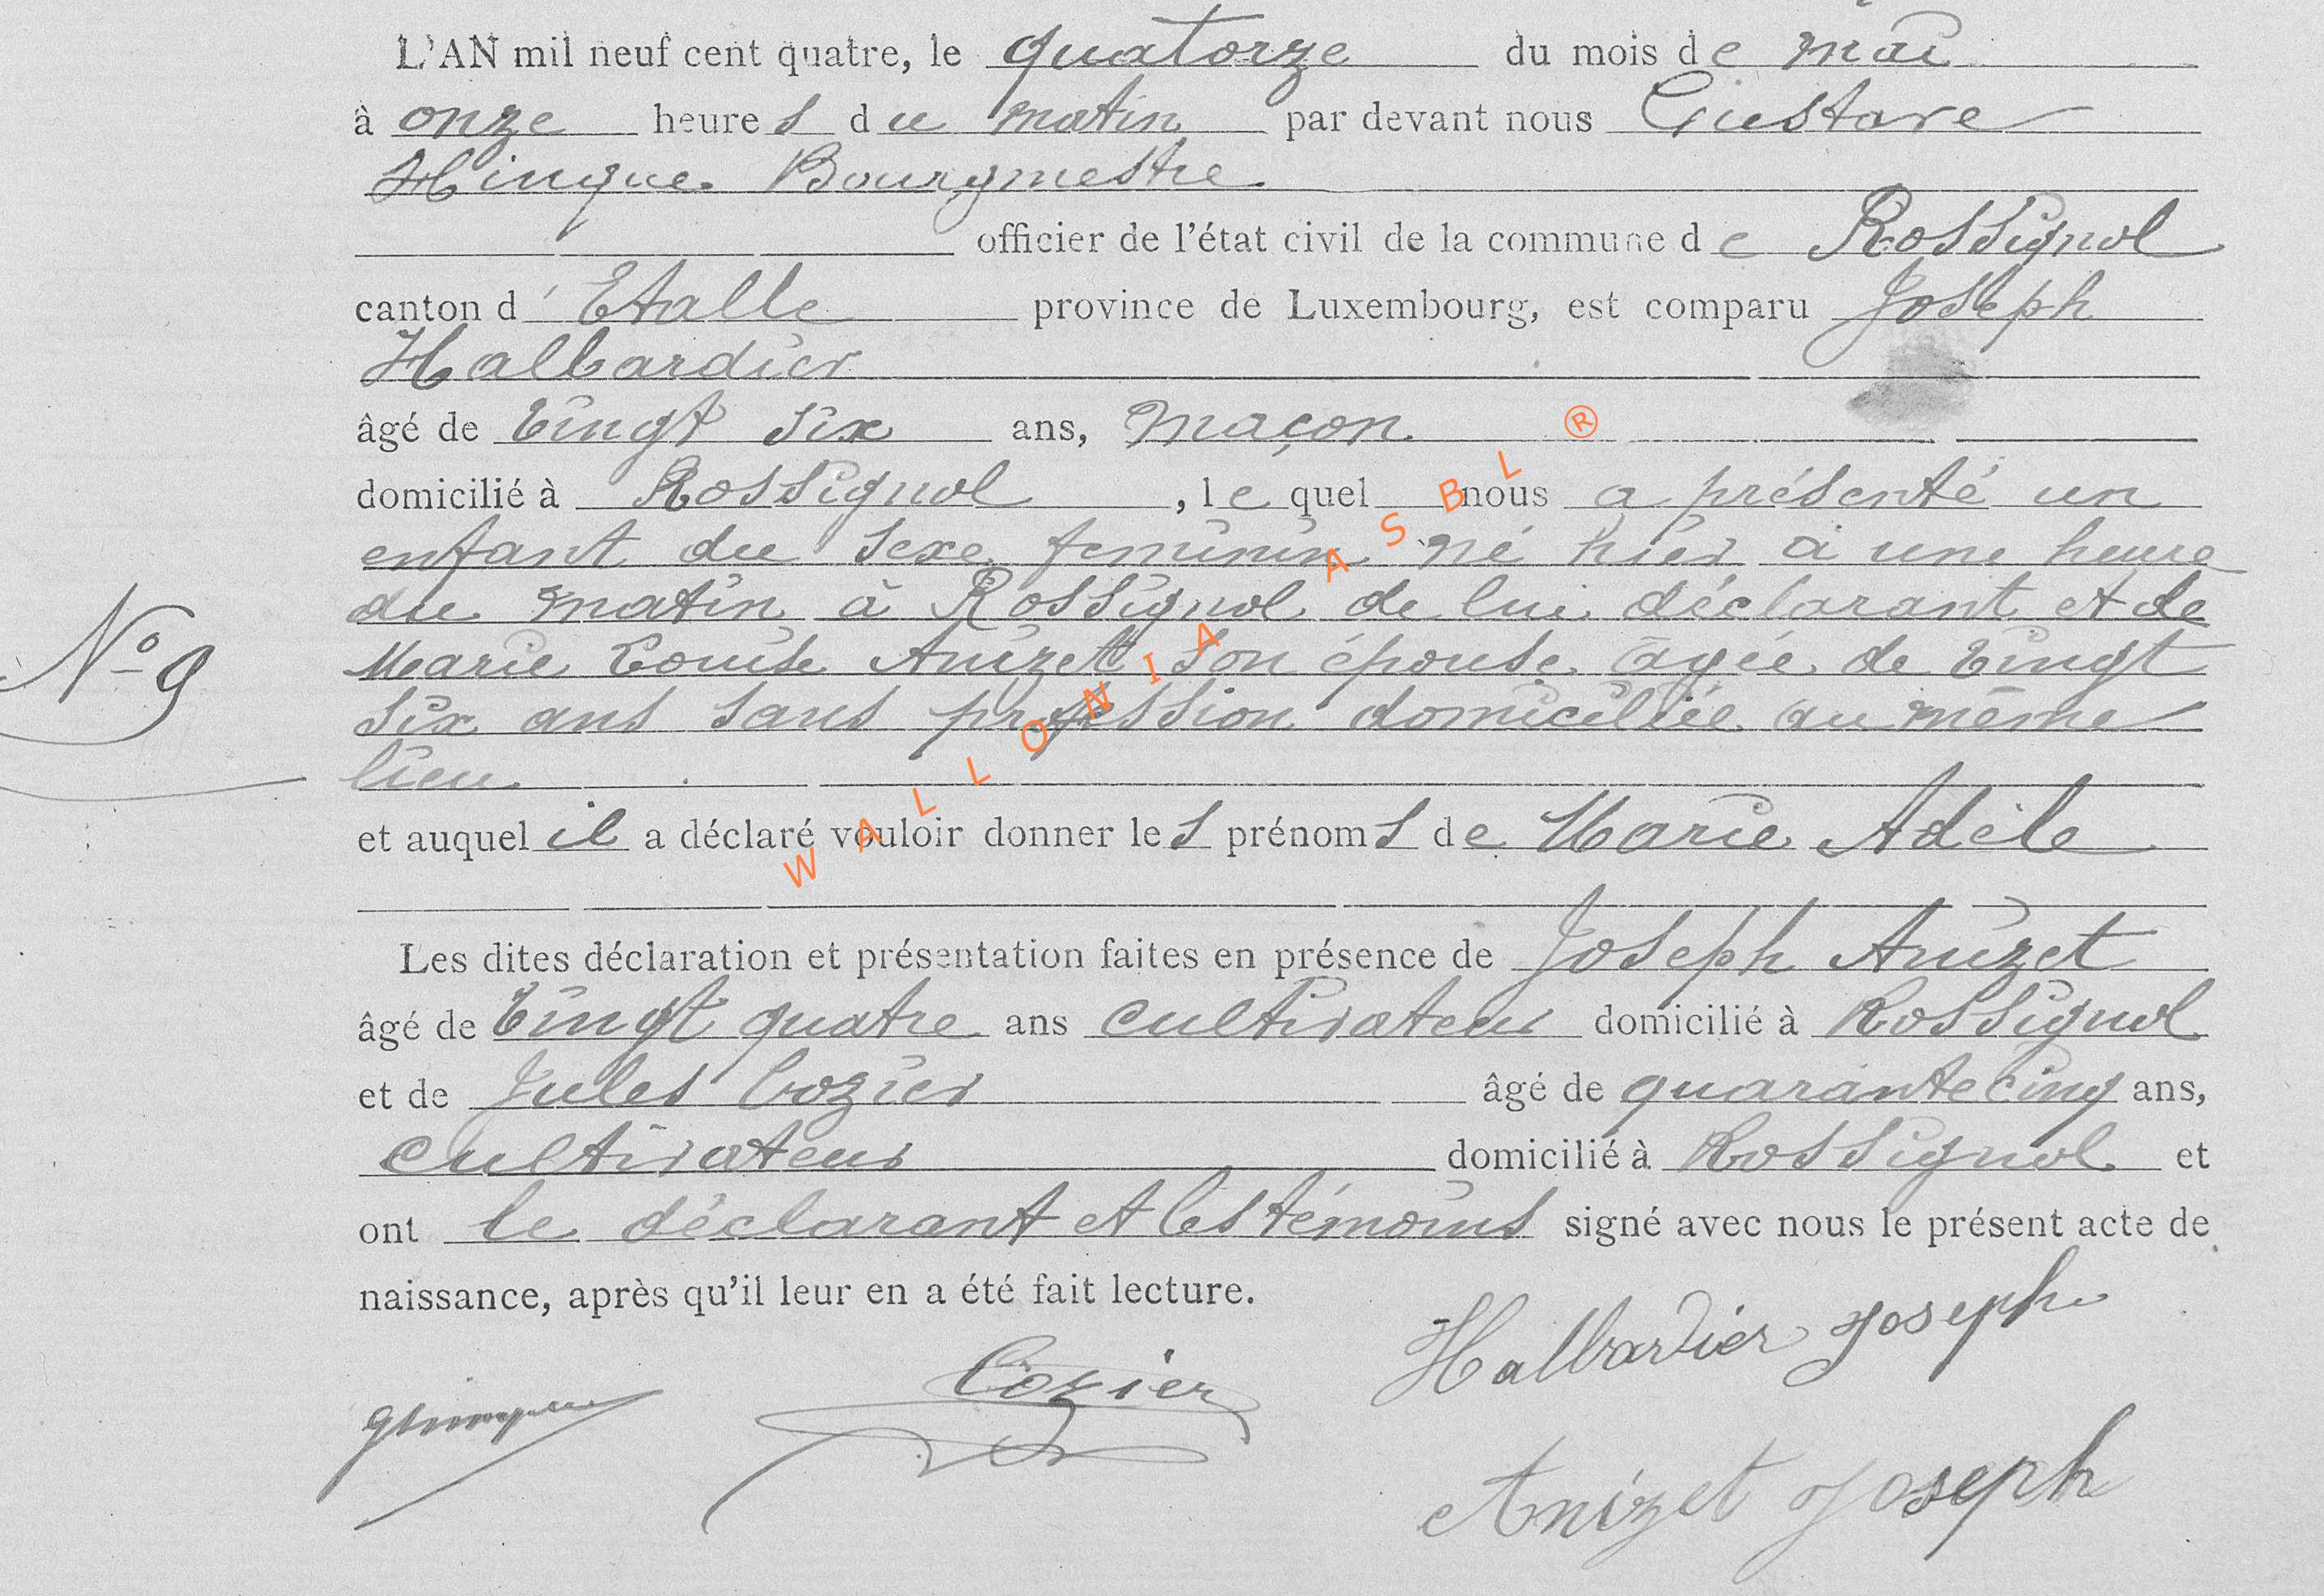 L'AN mil neuf cent quatre, le quatorze du mois de mai
à onze heures du matin par devant nous Gustave
Hinque Bourgmestre
officier de l'état civil de la commune de Rossignol
canton d'Etalle province de Luxembourg, est comparu Joseph
Halbardier
âgé de vingt six ans, maçon ®
domicilié à Rossignol, lequel nous a présenté un
enfant du sexe feminin né hier à une heure
du matin à Rossignol de lui déclarant et de
N° 9
Marie Louise Anizet son épouse agée de vingt
six ans sans profession domiciliée au même
lieu
et auquel il a déclaré vouloir donner les prénoms de Marie Adèle
WALLONIA ASBL
Les dites déclaration et présentation faites en présence de Joseph Anizet
âgé de vingt quatre ans cultivateur domicilié à Rossignol
et de Jules Cozier âgé de quarante cinq ans,
cultivateur domicilié à Rossignol et
ont le déclarant et les témoins signé avec nous le présent acte de
naissance, après qu'il leur en a été fait lecture.
Halbardier Joseph
Cozier
Anizet Joseph